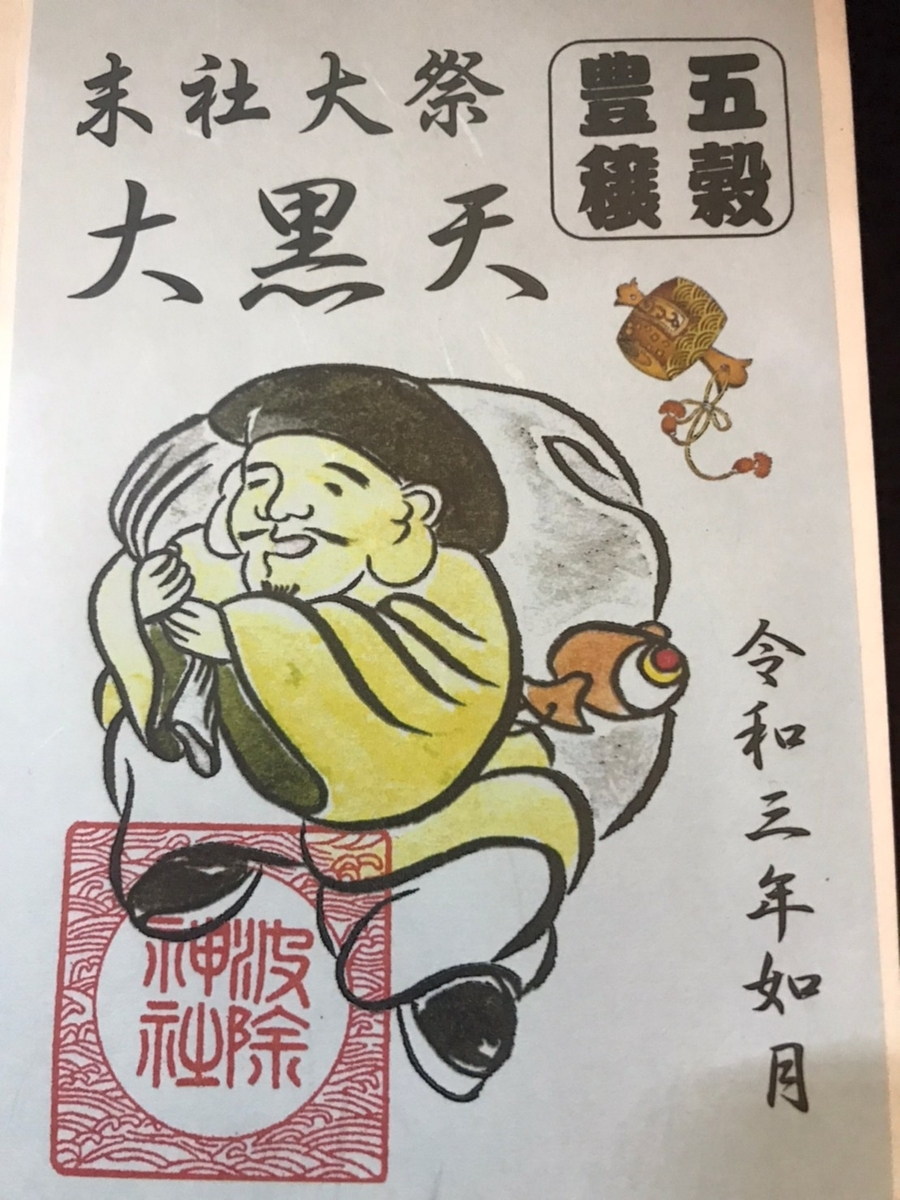 末社大祭
大黒天
五穀
豊穣
令和三年如月
波除
神社